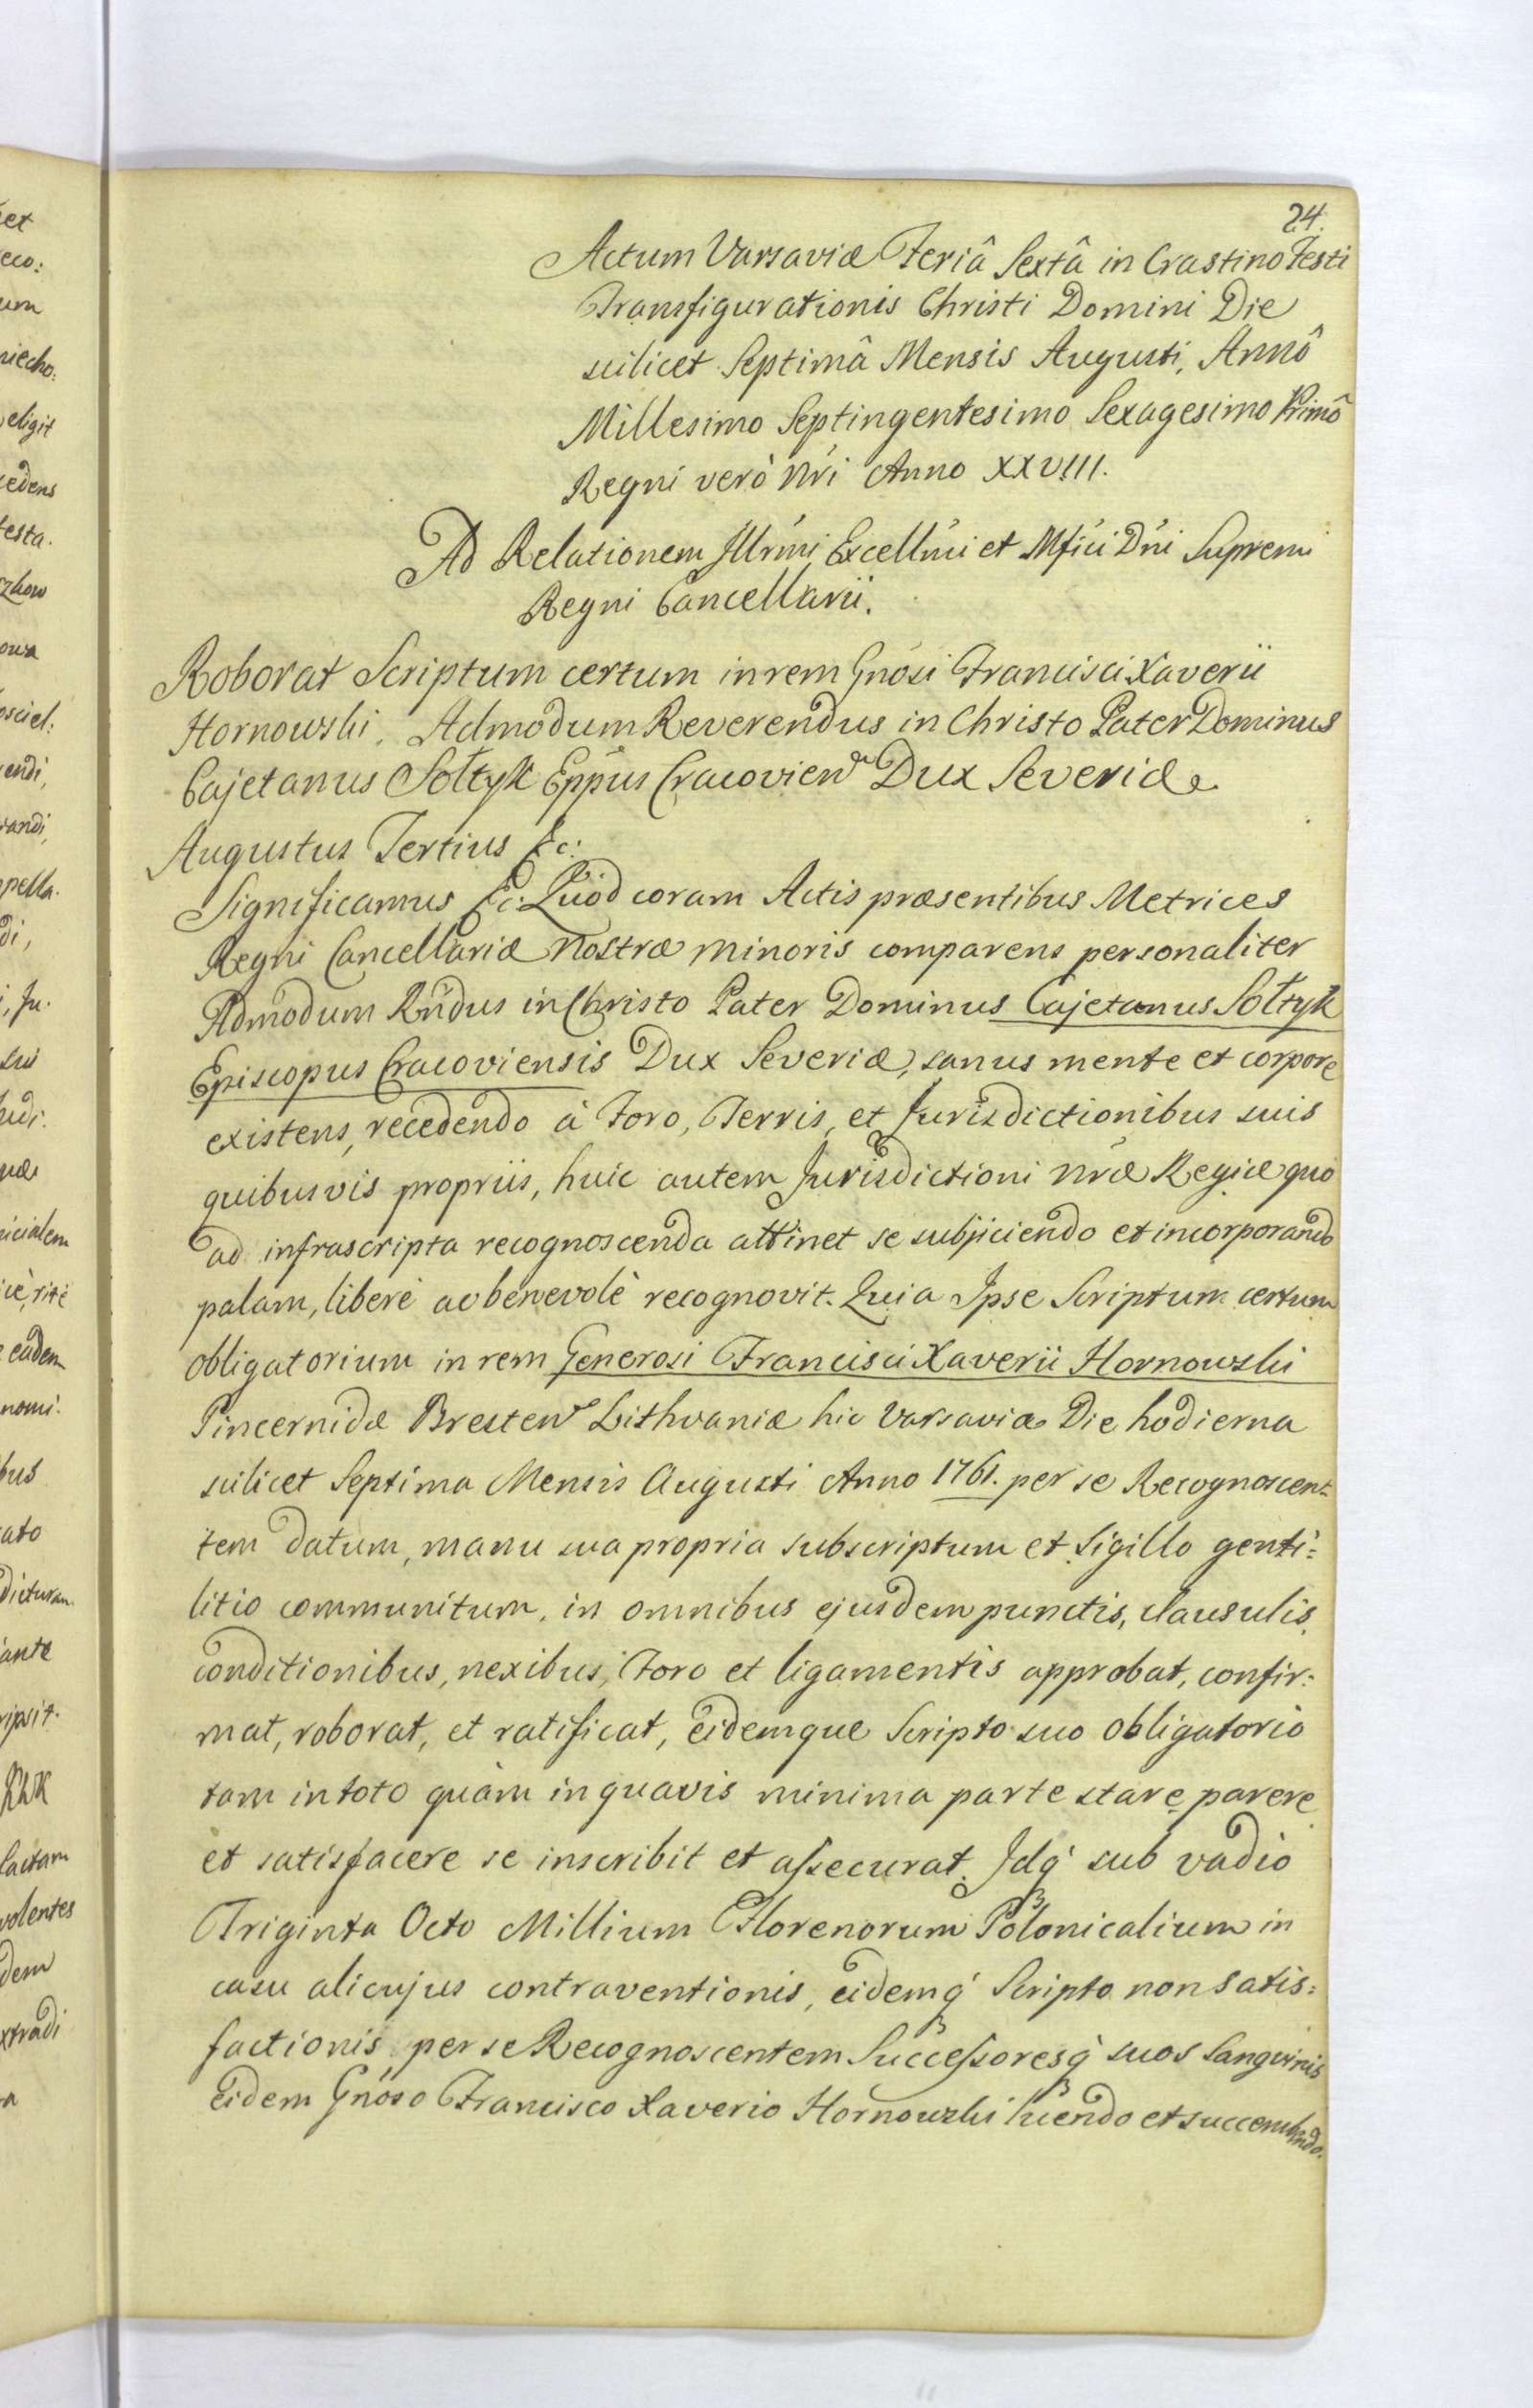 24.
Actum Varsaviæ Feriâ Sextâ in Crastino Festi
Transfigurationis Christi Domini Die
scilicet Septimâ Mensis Augusti, Annô
Millesimo Septingentesimo Sexagesimo Primô
Regni verò Nri Anno XXVIII.
Ad Relationem Jllrmi Excellmi et Mfici Dni Supremi
Regni Cancellarii.
Roborat Scriptum certum in rem Gnosi Francisci Xaverii
Hornowski. Admodum Reverendus in Christo Pater Dominus
Cajetanus Sołtyk Eppus Cracovien Dux Severiæ
Augustus Tertius &c:
Significamus &c: Quod coram Actis præsentibus Metrices
Regni Cancellariæ Nostræ minoris comparens personaliter
Admodum Rndus in Christo Pater Dominus Cajetanus Sołtyk
Episcopus Cracoviensis Dux Severiæ, sanus mente et corpore
existens, recedendo à Foro, Terris, et Jurisdictionibus suis
quibusvis propriis, huic autem Jurisdictioni nræ Regiæ quo
ad infrascripta recognoscenda attinet se subjiciendo et incorporando
palam, liberè ac benevolè recognovit. Quia Ipse Scriptum certum
obligatorium in rem Generosi Francisci Xaverii Hornowski
Pincernidæ Bresten Lithvaniæ hic Varsaviæ Die hodierna
scilicet Septima Mensis Augusti Anno 1761. per se Recognoscen=
tem datum, manu sua propria subscriptum et Sigillo genti=
litio communitum, in omnibus ejusdem punctis, clausulis,
conditionibus, nexibus, Foro et ligamentis approbat, confir=
mat, roborat, et ratificat, eidemque Scripto suo obligatorio
tam in toto quàm in quavis minima parte stare, parere
et satisfacere se inscribit et assecurat. Jdq́ sub vadio
Triginta Octo Millium Florenorum Polonicalium in
casu alicujus contraventionis, eidemq́ Scripto non satis=
factionis, per se Recognoscentem Successoresq́ suos Sangvinis
Eidem Gnoso Francisco Xaverio Hornowski luendo et succumbendo.